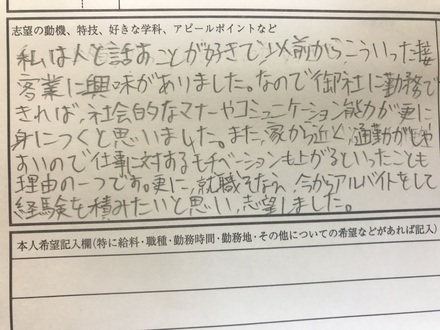 志望の動機、特技、好きな学科、アピールポイントなど
私は人と話すことが好きで、以前から、こういった接
客業に興味がありました。なので御社に勤務で
きれば、社会的なマナーやコミュニケーション能力が更に
身につくと思いました。また、家から近く、通勤がしや
すいので仕事に対するモチベーションも上がるといったことも
理由の一つです。更に、就職そなえ、今からアルバイトをして
経験を積みたいと思い、志望しました。
本人希望記入欄(特に給料・職種・勤務時間・勤務地・その他についての希望などがあれば記入)